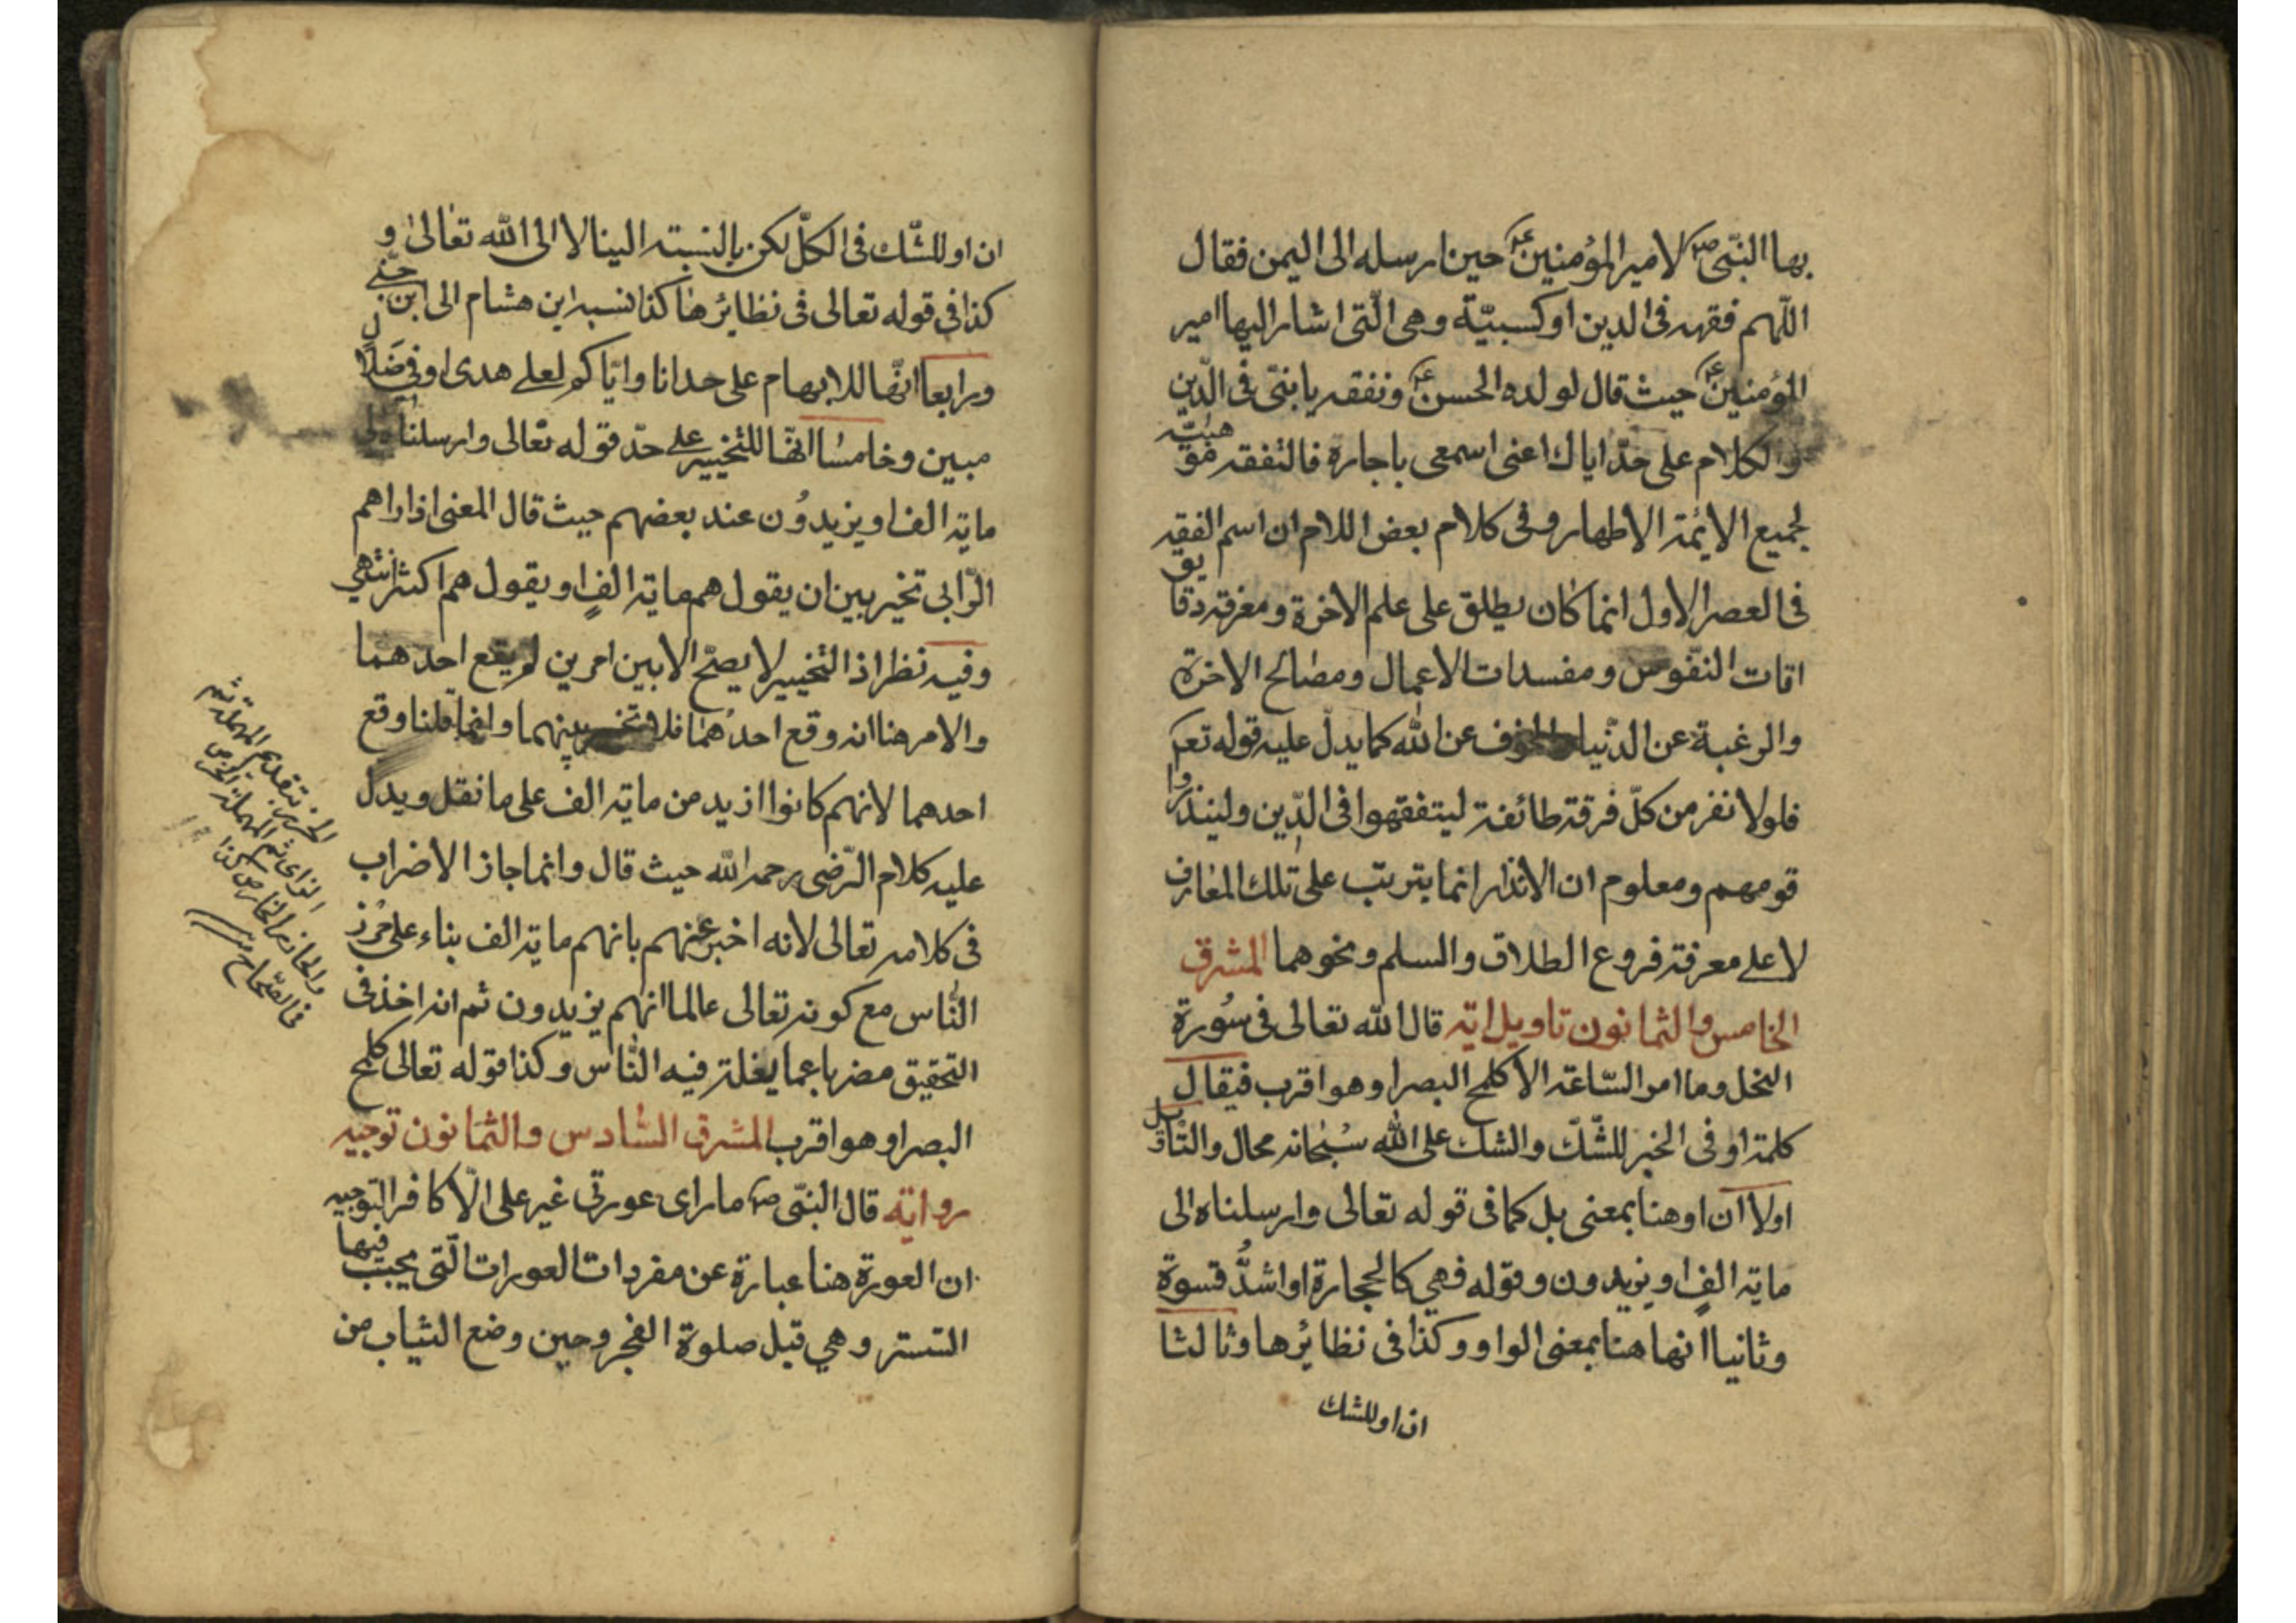 بها النبّي ص لامير المؤمنين ع حين ارسله الى اليمن فقال
اللّهم فقهه فى الدين او كسبيّة وهى الّتى اشار اليها امير
المؤمنين ع حيث قال لولده الحسن ع وتفقه يا بنىّ فى الدّين
والكلام على حدّ اياك اعنى اسمعى يا جارة فالتفقه
لجميع الائمة الاطهار وفى كلام بعض اللام ان اسم الفقه
فى العصر الاول انما كان يطلق على علم الاخرة ومعرفة دقايق
افات النفوس ومفسدات الاعمال ومصالح الاخرة
والرغبة عن الدّنيا والخوف عن الله كما يدل عليه قوله تعم
فلولا نفر من كلّ فرقة طائفة ليتفقهوا فى الدّين ولينذروا
قومهم ومعلوم ان الانذار انما يترتب على تلك المعارف
لا على معرفة فروع الطلاق والسلم ونحوهما المشرق
الخامس والثمانون تاويل اية قال الله تعالى فى سُورة
النحل وما امر السّاعة الا كلمح البصر او هو اقرب فيقال
كلمة او فى الخبر للشّكّ والشك على الله سُبحانه محال والتاويل
اولا ان او هنا بمعنى بل كما فى قوله تعالى وارسلناه الى
ماية الفٍ او يزيدون وقوله فهي كالحجارة او اشدُّ قسوة
وثانيا انها هنا بمعنى الواو وكذا فى نظائرها وثالثا
ان او للشك
ان او للشّك فى الكلّ لكن بالنسبة الينا لا الى الله تعالى و
كذا في قوله تعالى فى نظائرها كذا نسبه ابن هشام الى ابن جنّي
ورابعا انّها للابهام على حد انا وايّاكم لعلى هدى او في ضَلالٍ
مبين وخامسًا انهّا للتخيير على حدّ قوله تعالى وارسلناه الى
ماية الف او يزيدوُن عند بعضهم حيث قال المعنى اذا راهم
الرّابى تخير بين ان يقول هم ماية الفٍ او يقول هم اكثر انتهي
وفيه نظر اذ التخيير لا يصحّ الا بين امرين لم يقع احدهما
والامر هنا انه وقع احدُهما فلا تخيير بينهما وانما قلنا وقع
احدهما لانهم كانوا ازيد من ماية الف على ما نقل ويدل
عليه كلام الرّضى رحمه الله حيث قال وانما جاز الاضراب
فى كلامه تعالى لانه اخبر عنهم بانهم ماية الف بناء على حَرز
النُّاس مع كونه تعالى عالما انهم يزيدون ثم انه اخذ فى
التحقيق مضربا عما يغلت فيه النّاس وكذا قوله تعالى كلمح
البصر او هو اقرب المشرق السّادس والثمانون توجيه
رواية قال النبّى ص ما راى عورتى غير على الّا كافر التوجيه
ان العورة هنا عبارة عن مفردات العورات الّتى يجب فيها
التستر وهي قبل صلوة الفجر وحين وضع الثياب من
الحرز بتقديم المهملة ثم
الزاى ثم المهملة الخرص
والحازر الخارص كذا
فى الصّحاح